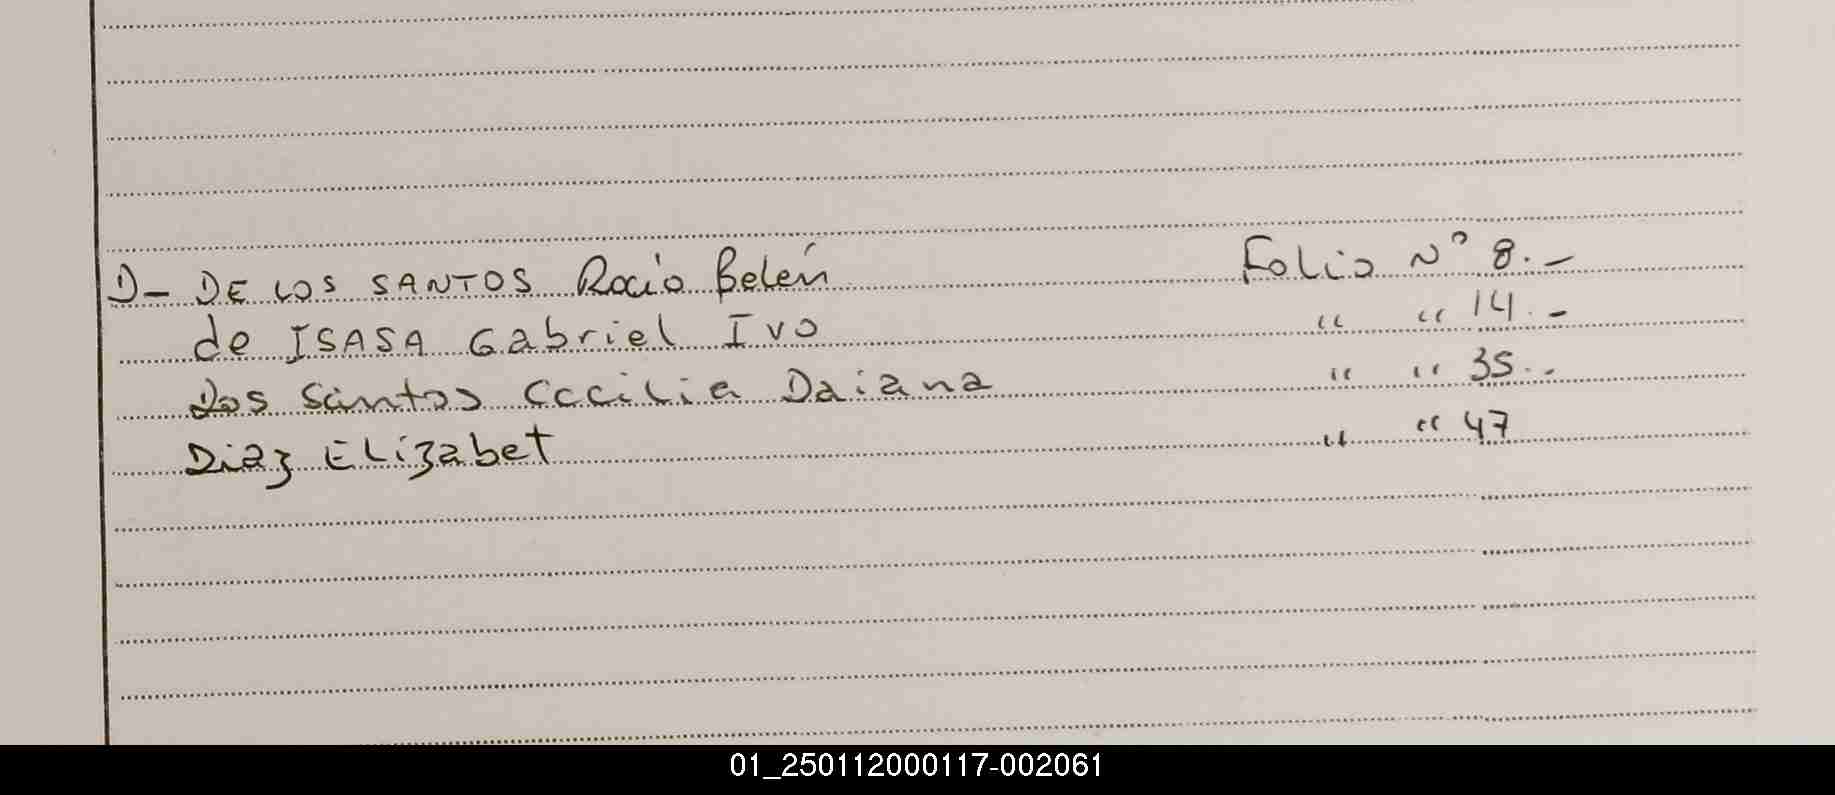 D- DE LOS SANTOS Rocío Belén Folio N° 8.-
de ISASA Gabriel Ivo " " 14.-
Dos Santos Cecilia Daiana " " 35..
Diaz Elizabet " " 47
01_250112000117-002061